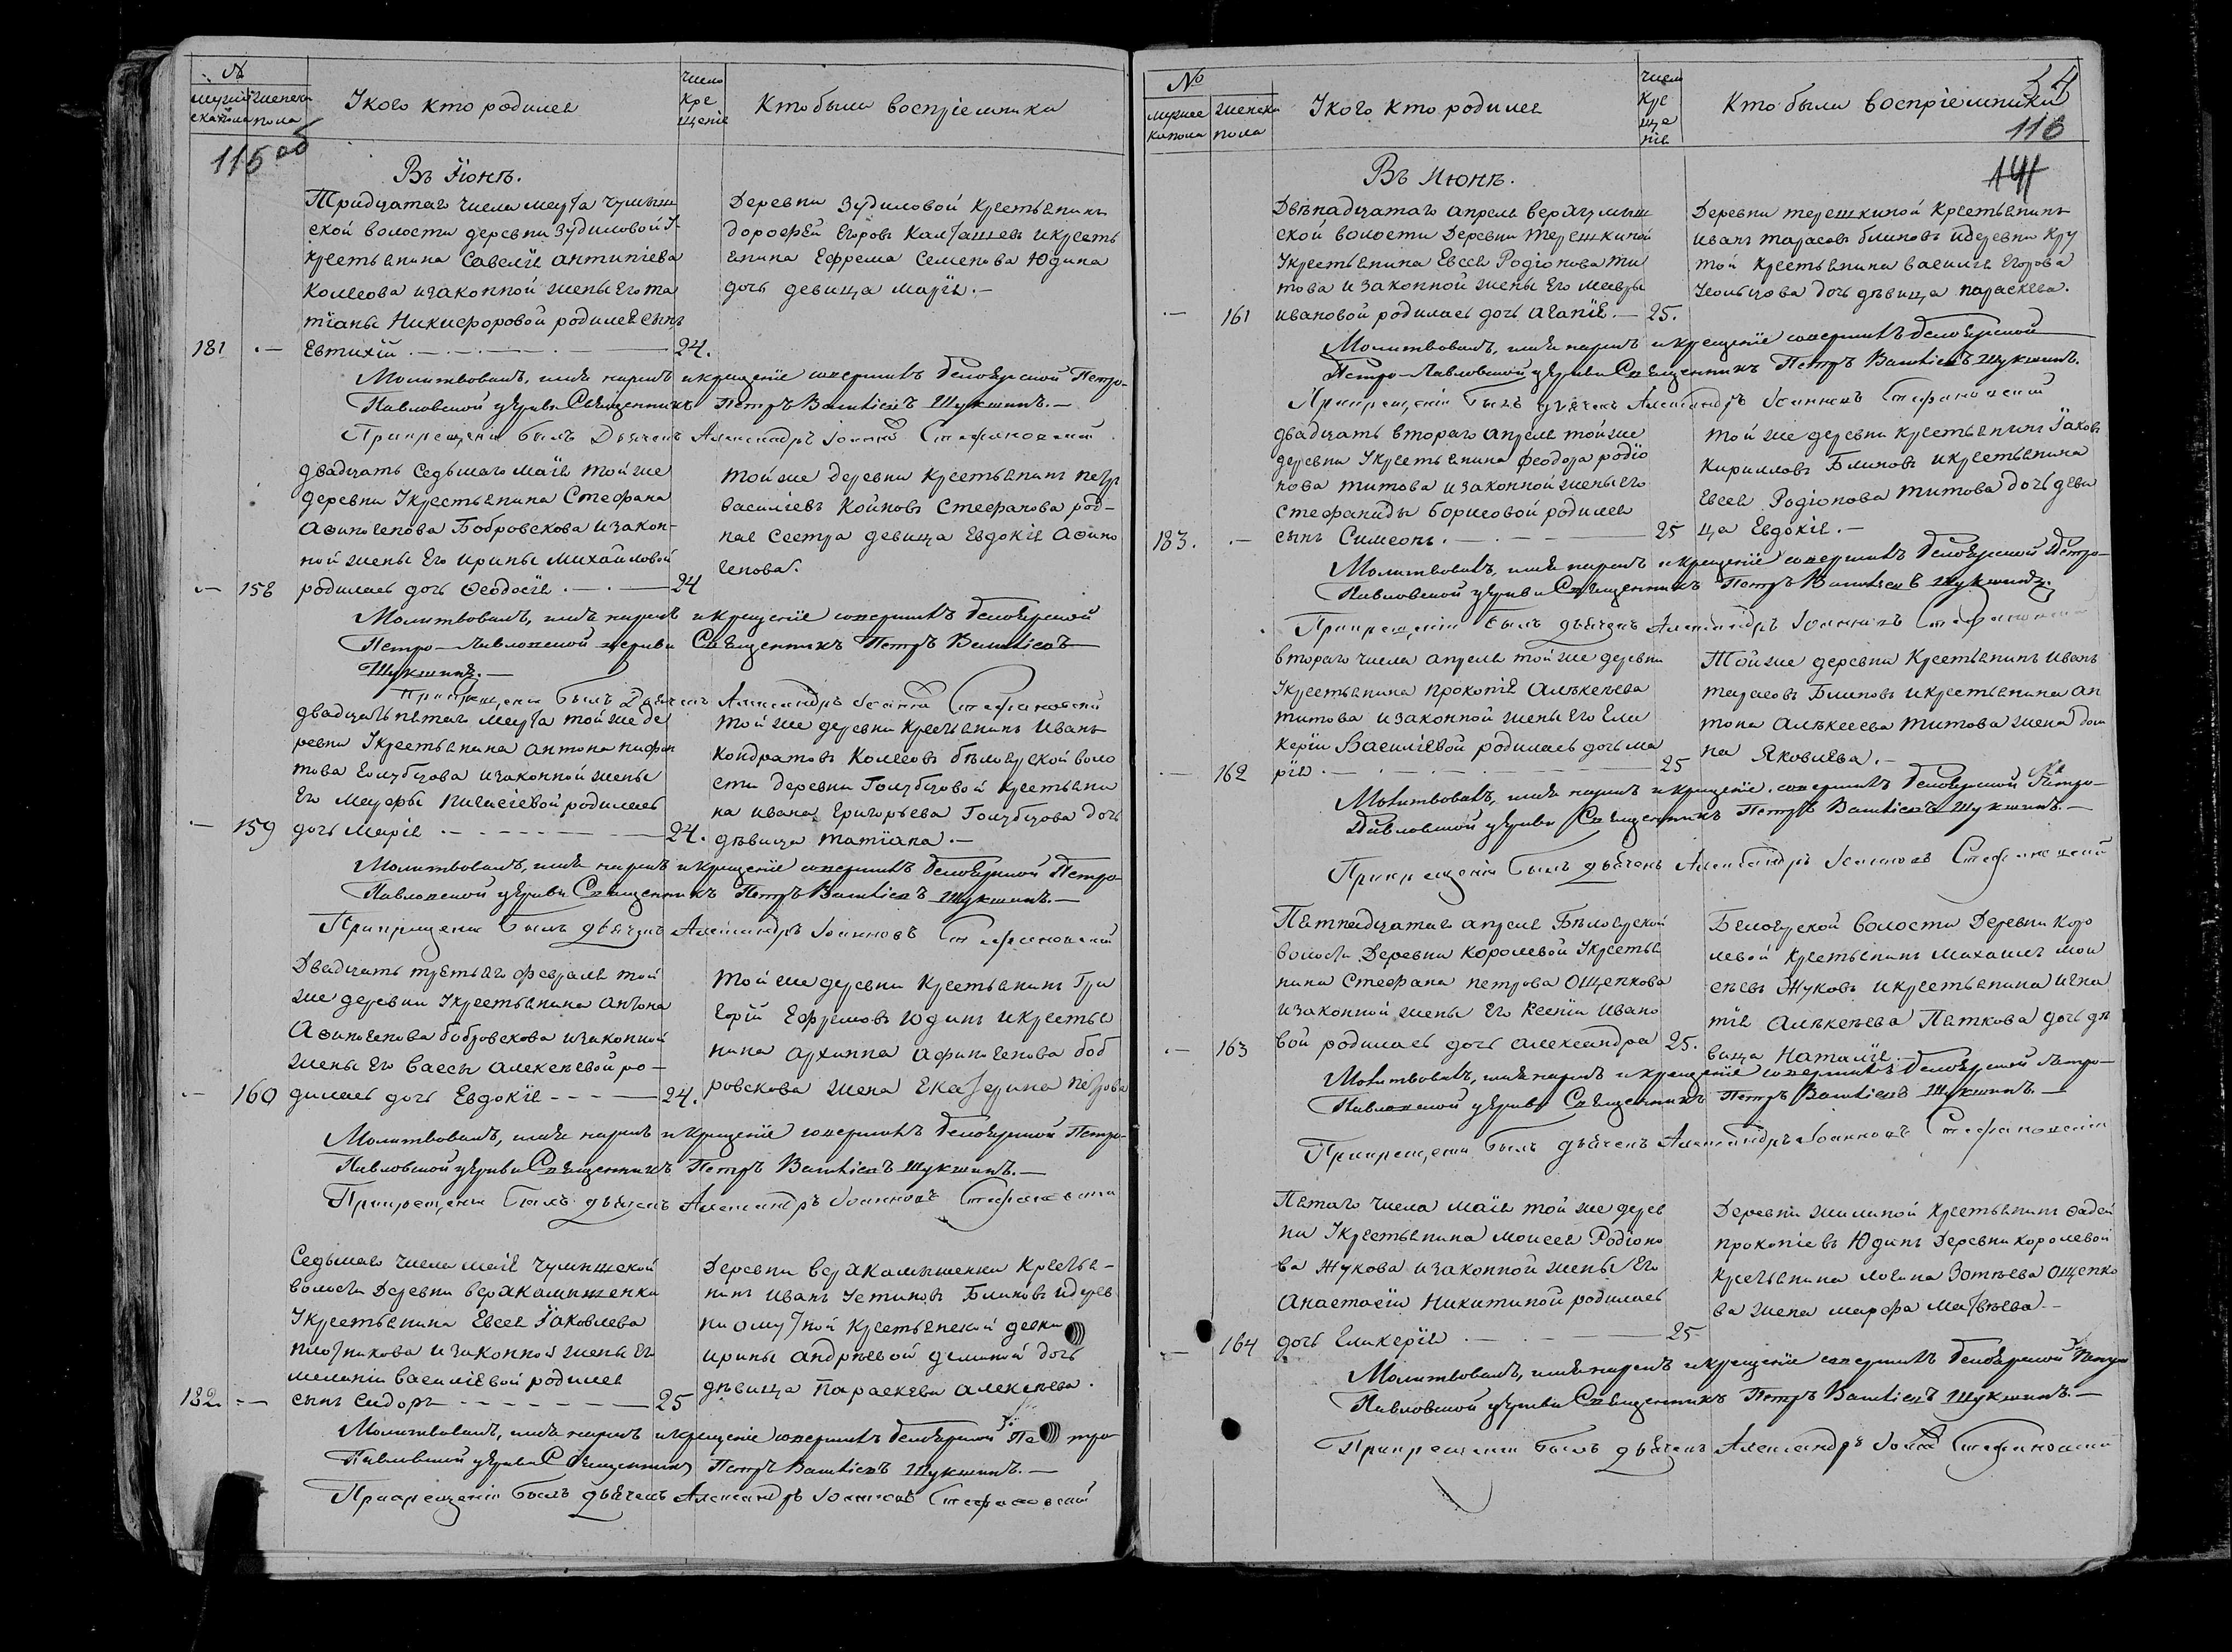 №
мужес женска
ска пола пола
У кого кто родился
число
кре
щенiя
Кто были воспрiемники
115 об
Въ Iюнѣ.
Тридцатаго числа марта чумыш
ской волости деревни Зудиловой у
крестьянина Савелiя антипiева
Колесова и законной жены его та
тiаны Никифоровой родился сынъ
181 — Евтихiй 24.
Деревни Зудиловой крестьянинъ
дорофей Егоровъ Калташевъ и кресть
янина Ефрема Семенова Юдина
дочь девица марiя.
Молитвовалъ, имя нарекъ и крещенiе совершилъ белоярской Петро-
Павловской церкви Священникъ Петръ Васильевъ Шукшинъ.
При крещенiи былъ Дьячекъ Александръ Iоанновъ Стефановскiй
двадцать седьмаго маiя той же
деревни у крестьянина Стефана
Афиногенова Бобровскова и закон-
ной жены его ирины михайловой
— 158 родилась дочь Феодосiя 24
той же деревни крестьянинъ петръ
василiевъ Койновъ Стефанова род-
ная сестра девица Евдокiя Афино
генова.
Молитвовалъ, имя нарекъ и крещенiе совершилъ белоярской
Петро-Павловской церкви Священникъ Петръ Васильевъ
Шукшинъ.
При крещенiи былъ Дьячекъ Александръ Iоанновъ Стефановскiй
двадцать пятаго марта той же де
ревни у крестьянина антона нифан
това Голубцова и законной жены
его марфы родилась
— 159 дочь марiя 24.
той же деревни крестьянинъ иванъ
Кондратовъ Колесовъ бѣлоярской воло
сти деревни Голубцовой крестьяни
на ивана григорьева Голубцова дочь
дѣвица татiана.
Молитвовалъ, имя нарекъ и крещенiе совершилъ белоярской Петро-
Павловской церкви Священникъ Петръ Васильевъ Шукшинъ.
При крещенiи былъ дьячекъ Александръ Iоанновъ Стефановскiй
Двадцать третьяго февраля той
же деревни у крестьянина антона
Афиногенова бобровскова и законной
жены его васы алексѣевой ро-
— 160 дилась дочь Евдокiя 24.
той же деревни крестьянинъ Гри
горiй Ефремовъ Юдинъ и крестья
нина архиппа афиногенова боб
ровскова жена Екатерина петрова
Молитвовалъ, имя нарекъ и крещенiе совершилъ белоярской Петро-
Павловской церкви Священникъ Петръ Васильевъ Шукшинъ.
При крещенiи былъ дьячекъ Александръ Iоанновъ Стефановскiй
Седьмаго числа маiя чумышской
волости деревни верхкамышенки
у крестьянина Евсея Iаковлева
плотникова и законной жены его
меланiи василiевой родился
182 — сынъ сидоръ 25
Деревни верхкамышенки крестья-
нинъ иванъ устиновъ Блиновъ и дерев
ни омутной крестьянской девки
ирины андрѣевой деминой дочь
дѣвица Параскева алексѣева.
Молитвовалъ, имя нарекъ и крещенiе совершилъ белоярской Петро
Павловской церкви Священникъ Петръ Васильевъ Шукшинъ.
При крещенiи былъ дьячекъ Александръ Iоанновъ Стефановскiй
№
мужес женска
ка пола пола
У кого кто родился
числ
кре
ще
нiя
Кто были воспрiемники
54
116
141
Въ Июнѣ.
Двѣнадцатаго апреля верхчумыш
ской волости Деревни терешкиной
у крестьянина Евсея Родiонова ти
това и законной жены его мавры
— 161 ивановой родилась дочь агапiя. 25.
Деревни терешкиной крестьянинъ
иванъ тарасовъ блиновъ и деревни кру
той крестьянина василiя Егорова
дочь дѣвица параскева.
Молитвовалъ, имя нарекъ и крещенiе совершилъ белоярской
Петро-Павловской церкви Священникъ Петръ Васильевъ Шукшинъ.
При крещенiи былъ дьячекъ Александръ Iоанновъ Стефановскiй
двадцать втораго апреля той же
деревни у крестьянина феодора родiо
нова титова и законной жены его
стефаниды борисовой родился
183. — сынъ Симеонъ. 25
той же деревни крестьянинъ Iаковъ
кирилловъ Блиновъ и крестьянина
Евсея Родiонова титова дочь деви
ца Евдокiя.
Молитвовалъ, имя нарекъ и крещенiе совершилъ белоярской Петро-
Павловской церкви Священникъ Петръ Васильевъ Шукшинъ.
При крещенiи былъ дьячекъ Александръ Iоанновъ Стефановскiй
втораго числа апреля той же деревни
у крестьянина прокопiя алѣксѣева
титова и законной жены его Гли
керiи Василiевой родилась дочь ма
— 162 рiя. 25
Той же деревни крестьянинъ иванъ
тарасовъ Блиновъ и крестьянина ан
тона алѣксеева титова жена дом
на Яковлева.
Молитвовалъ, имя нарекъ и крещенiе совершилъ белоярской Петро-
Павловской церкви Священникъ Петръ Васильевъ Шукшинъ.
При крещенiи былъ дьячекъ Александръ Iоанновъ Стефановскiй
Пятнадцатаго апреля Бѣлоярской
волости Деревни королевой у крестья
нина Стефана петрова Ощепкова
и законной жены его Ксенiи ивано
— 163 вой родилась дочь александра 25.
Белоярской волости Деревни коро
левой крестьянинъ михаилъ мои
сѣевъ Жуковъ и крестьянина игна
тiя алѣксѣева Пяткова дочь дѣ
вица Наталiя.
Молитвовалъ, имя нарекъ и крещенiе совершилъ белоярской Петро-
Павловской церкви Священникъ Петръ Васильевъ Шукшинъ.
При крещенiи былъ дьячекъ Александръ Iоанновъ Стефановскiй
Пятаго числа маiя той же дерев
ни у крестьянина моисея Родiоно
ва Жукова и законной жены его
анастасiи Никитиной родилась
— 164 дочь Гликерiя 25
Деревни жилиной крестьянинъ фадей
прокопiевъ Юдинъ Деревни королевой
крестьянина логина Зотѣева ощепко
ва жена марфа матвѣева
Молитвовалъ, имя нарекъ и крещенiе совершилъ белоярской Петро
Павловской церкви Священникъ Петръ Васильевъ Шукшинъ.
При крещенiи былъ дьячекъ Александръ Iоанновъ Стефановскiй